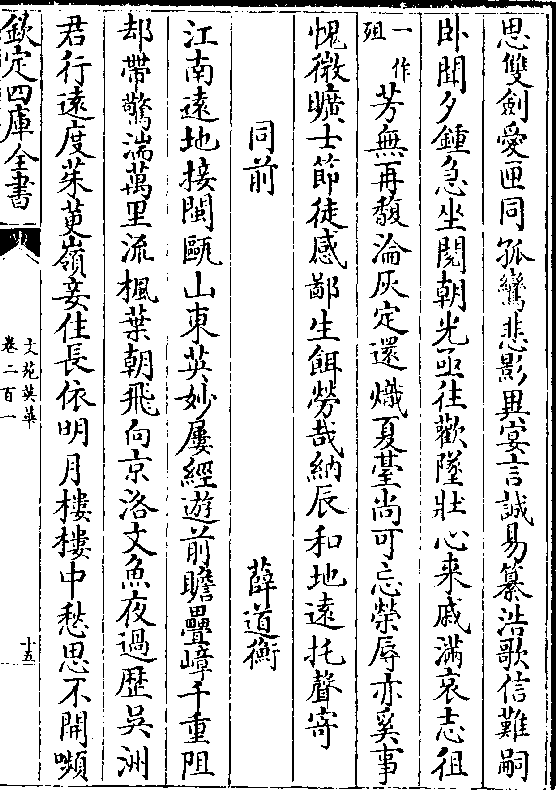 思雙劍愛匣同孤鸞悲影異宴言誠易纂浩歌信難嗣
卧聞夕鍾急坐閱朝光亟往歡墜壯心来戚滿哀志徂
一作
殂
芳無再馥淪灰定還熾夏䑓尚可忘榮辱亦奚事
愧微曠士節徒感鄙生餌勞哉納辰和地遠托聲寄
同前
薛道衡
江南遠地接閩甌山東英妙屢經遊前瞻疊嶂千重阻
却帶驚湍萬里流楓葉朝飛向京洛文魚夜過歷吳洲
君行遠度茱萸嶺妾住長依明月樓樓中愁思不開嚬
欽定四庫全書
文苑英華
卷二百一
十五